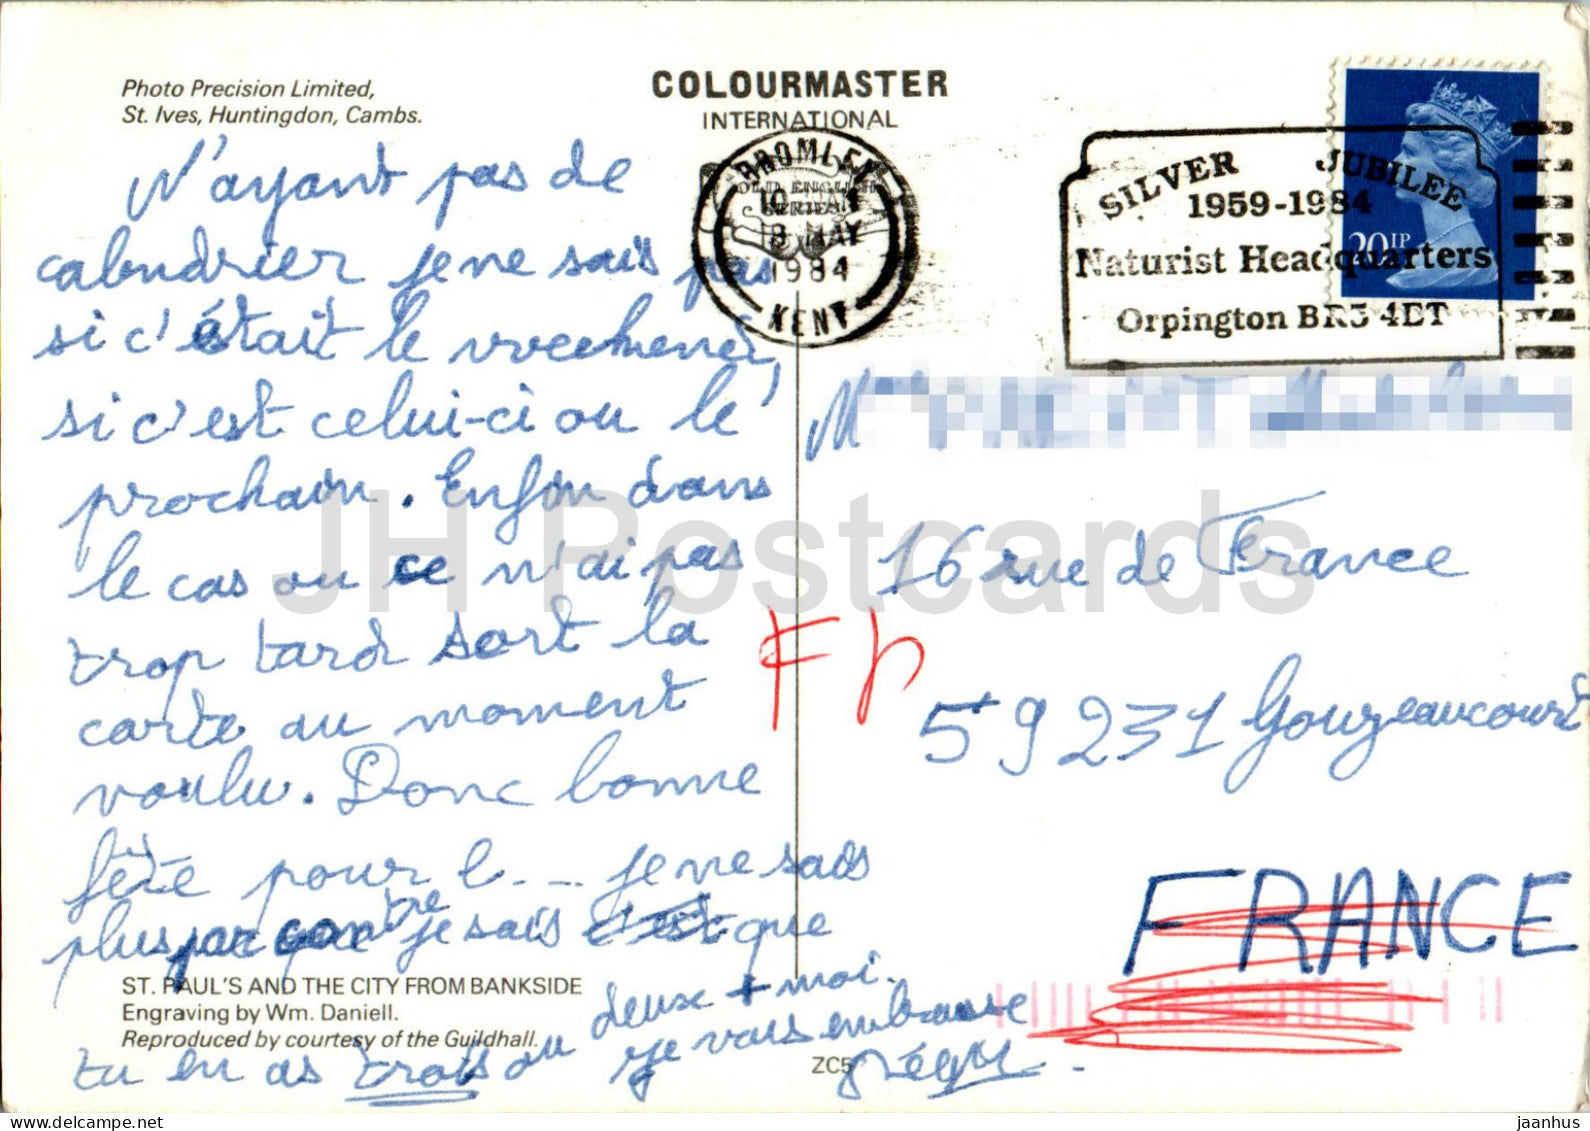 Photo Precision Limited,
St. Ives, Huntingdon, Cambs.
COLOURMASTER
INTERNATIONAL
OLD ENGLISH
SERIES
BROMLEY
18 MAY
1984
KENT
SILVER JUBILEE
1959-1984
Naturist Headquarters
Orpington BR5 4ET
20 1P
N'ayant pas de
calendrier je ne sais pas
si c'était le
si c'est celui-ci ou le
prochain. Enfin dans
le cas ou ce n'ai pas
trop tard sort la
carte au moment
voulu. Donc bonne
fête pour l... je ne sais
plus par contre je sais c'est que
tu en as trois ou deux + moi.
je vais embrasse
M
16 rue de France
59231 Gouzeaucourt
FRANCE
ST. PAUL'S AND THE CITY FROM BANKSIDE
Engraving by Wm. Daniell.
Reproduced by courtesy of the Guildhall.
ZC5
JH Postcards
jaanhus